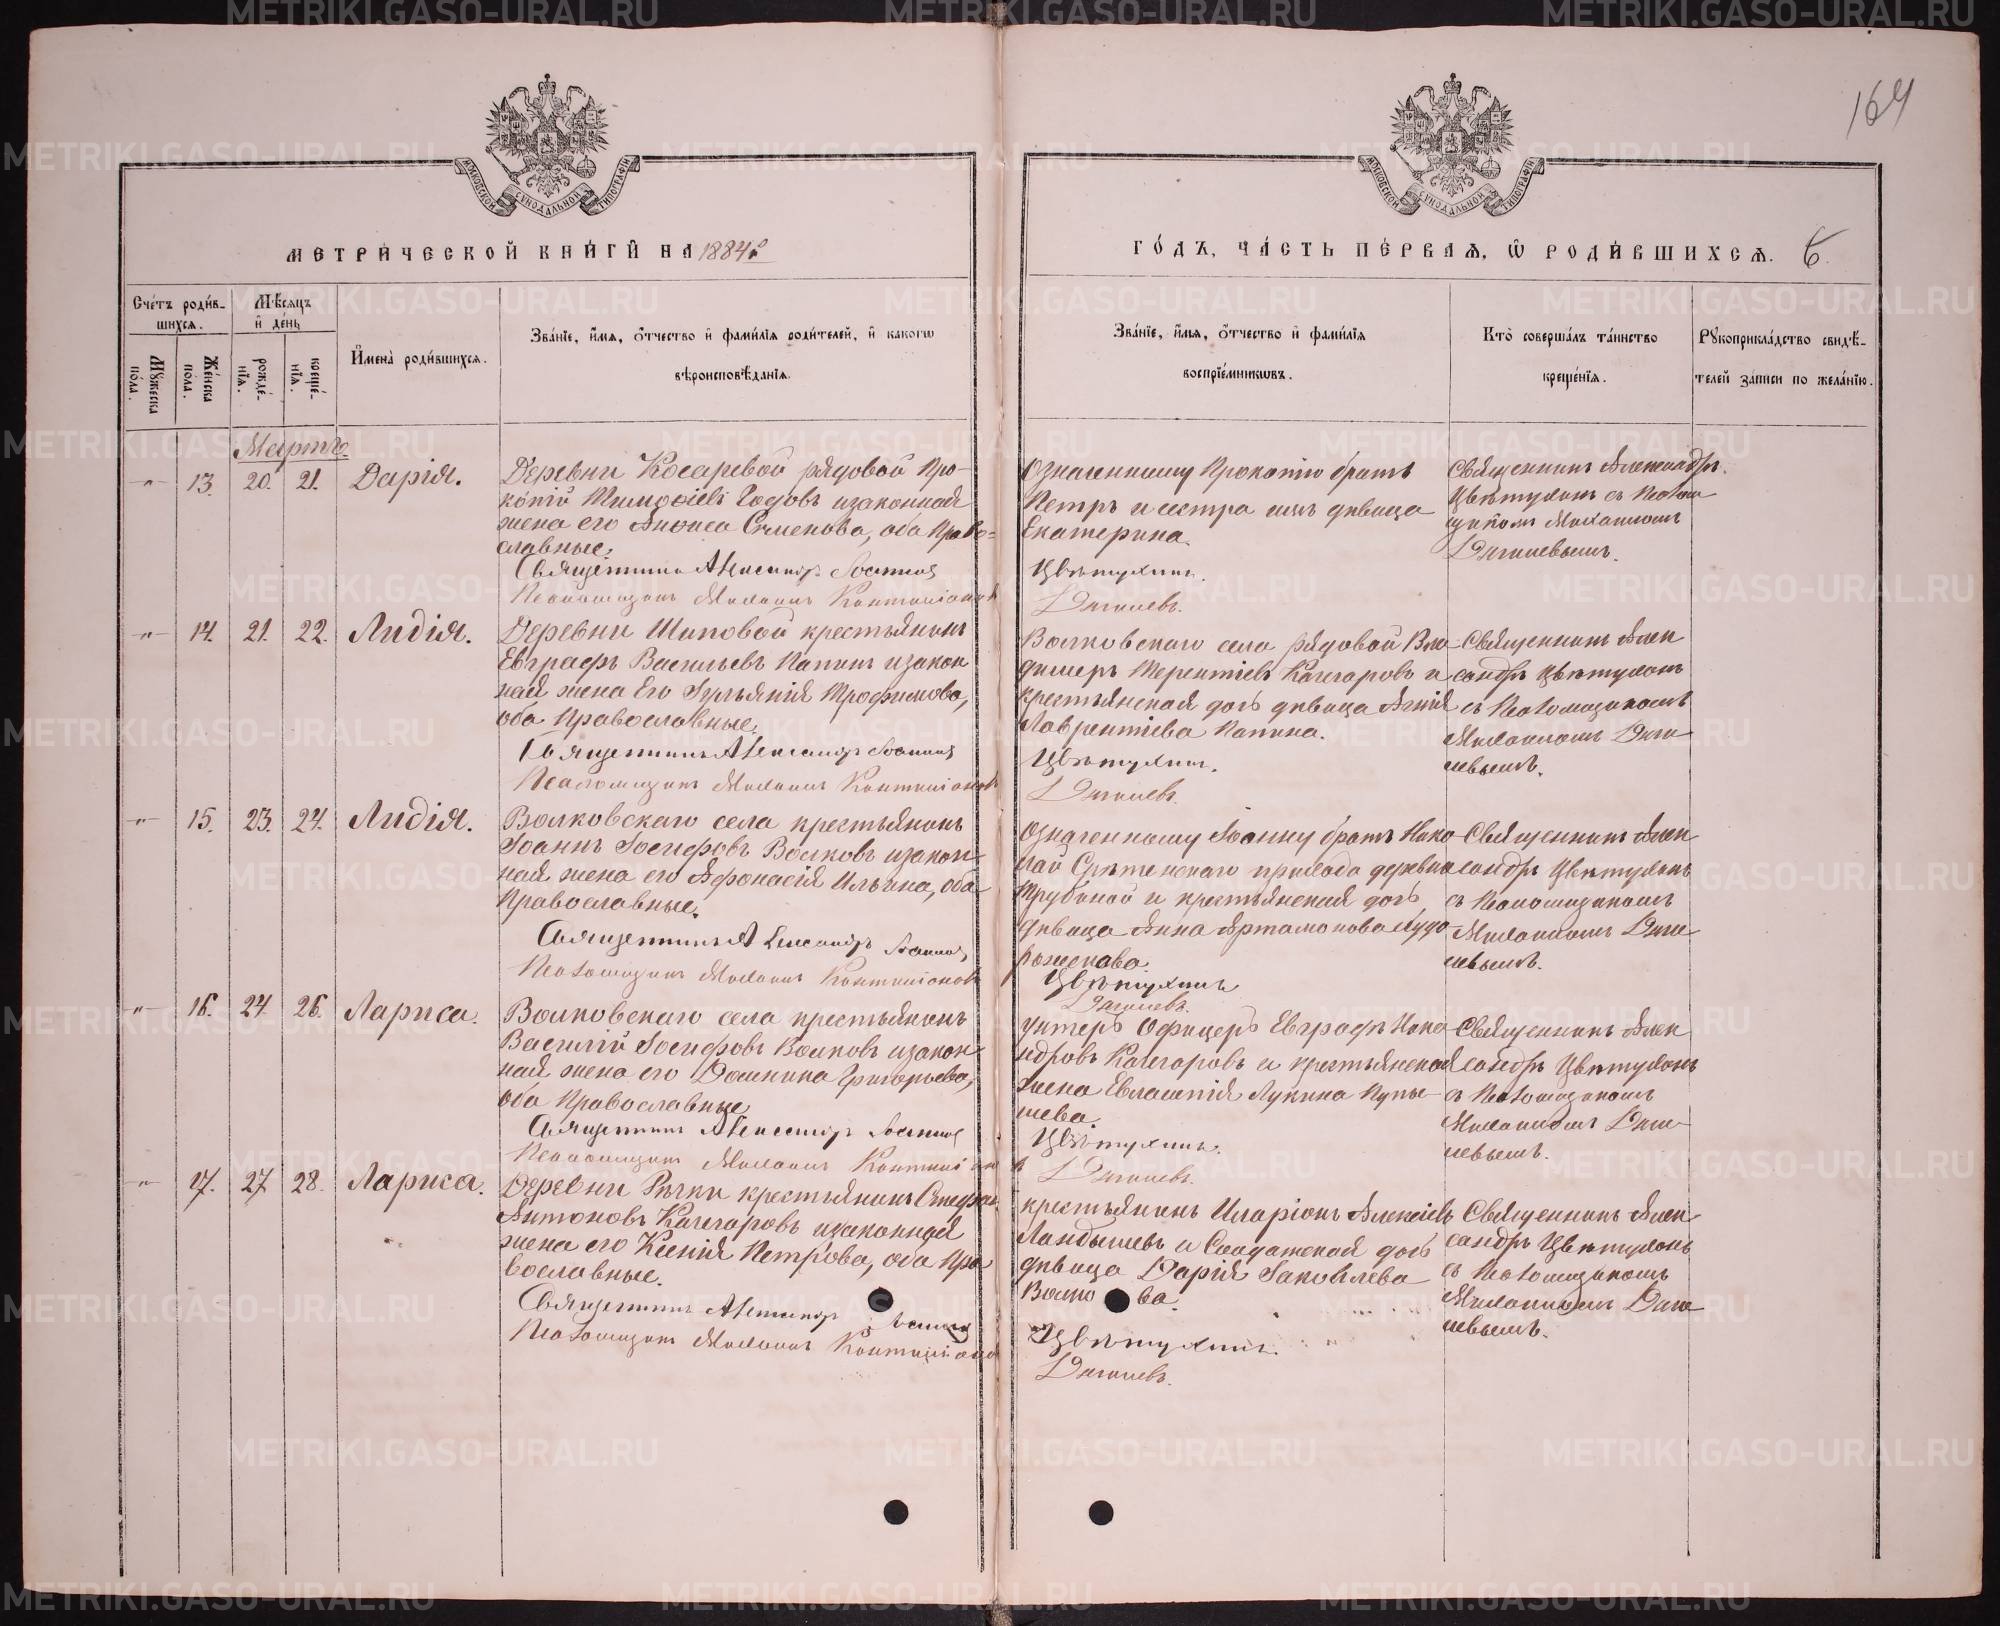 164
МЕТРИЧЕСКОЙ КНИГИ НА 1884 г.
ГОДЪ, ЧАСТЬ ПЕРВАЯ, Ѡ РОДИВШИХСЯ. 6
Счетъ родив-
шихся.
Мужеска пола.
Женска пола.
Мѣсяцъ
и день
рожде-
нїя.
креще-
нїя.
Имена родившихся.
Званїе, имя, отчество и фамилїя родителей, и какогѡ
вѣроисповѣданїя.
Званїе, имя, отчество и фамилїя
воспрїемникѡвъ.
Кто совершалъ таинство
крещенїя.
Рукоприкладство свидѣ-
телей записи по желанїю.
Мартъ
-"- 13. 20. 21. Дарія.
Деревни Косаревой рядовой Про-
копій Тимоѳіевъ Годовъ изаконная
жена его Анѳиса Семенова, оба Право-
славные.
Священникъ Александръ Іоанновъ
Псаломщикъ Михаилъ Континіоновъ
Означенному Прокопію братъ
Петръ и сестра ихъ дѣвица
Екатерина.
Цвѣтухинъ.
Дягилевъ.
Священникъ Александръ
Цвѣтухинъ съ Псалом
щикомъ Михаиломъ
Дягилевымъ.
-"- 14. 21. 22. Лидія.
Деревни Шиповой крестьянинъ
Евграфъ Васильевъ Папинъ изакон
ная жена Его Іульянія Трофимова,
оба Православные.
Священникъ Александръ Іоанновъ
Псаломщикъ Михаилъ Континіоновъ
Волковскаго села рядовой Вла-
димеръ Терентіевъ Качегаровъ и
крестьянская дочь дѣвица
Лаврентіева Папина.
Цвѣтухинъ.
Дягилевъ.
Священникъ Алек
сандръ Цвѣтухинъ
съ Псаломщикомъ
Михаиломъ Дяги
левымъ.
-"- 15. 23. 24. Лидія.
Волковскаго села крестьянинъ
Іоаннъ Іосифовъ Волковъ изакон-
ная жена его Афонасія Ильина, оба
Православные.
Священникъ Александръ Іоанновъ
Псаломщикъ Михаилъ Континіоновъ
Означенному Іоанну братъ Нико
лай Срѣтенскаго прихода деревни
Трубиной и крестьянская дочь
дѣвица Анна Артамонова Худо
рожкова
Цвѣтухинъ
Дягилевъ.
Священникъ Алек
сандръ Цвѣтухинъ
съ Псаломщикомъ
Михаиломъ Дяги
левымъ.
-"- 16. 24. 26. Лариса.
Волковскаго села крестьянинъ
Василій Іосифовъ Волковъ изакон-
ная жена его Домнина Григорьева,
оба Православные
Священникъ Александръ Іоанновъ
Псаломщикъ Михаилъ Континіоновъ
Унтеръ Офицеръ Евграфъ
Качегаровъ и крестьянская
жена Евлампія Лукина Пупы-
шева.
Цвѣтухинъ.
Дягилевъ.
Священникъ Алек
сандръ Цвѣтухинъ
съ Псаломщикомъ
Михаиломъ Дяги-
левымъ.
-"- 17. 27. 28. Лариса.
Деревни Рѣчки крестьянинъ Стефан
Антоновъ Качегаровъ изаконная
жена его Ксенія Петрова, оба Пра
вославные.
Священникъ Александръ Іоанновъ
Псаломщикъ Михаилъ Континіоновъ
Крестьянинъ Иларіонъ Алексіевъ
Ландышевъ и Солдатской дочь
дѣвица Дарія Іаковлева
Волкова.
Цвѣтухинъ.
Дягилевъ.
Священникъ Алек
сандръ Цвѣтухинъ
съ Псаломщикомъ
Михаиломъ Дяги
левымъ.
METRIKI.GASO-URAL.RU